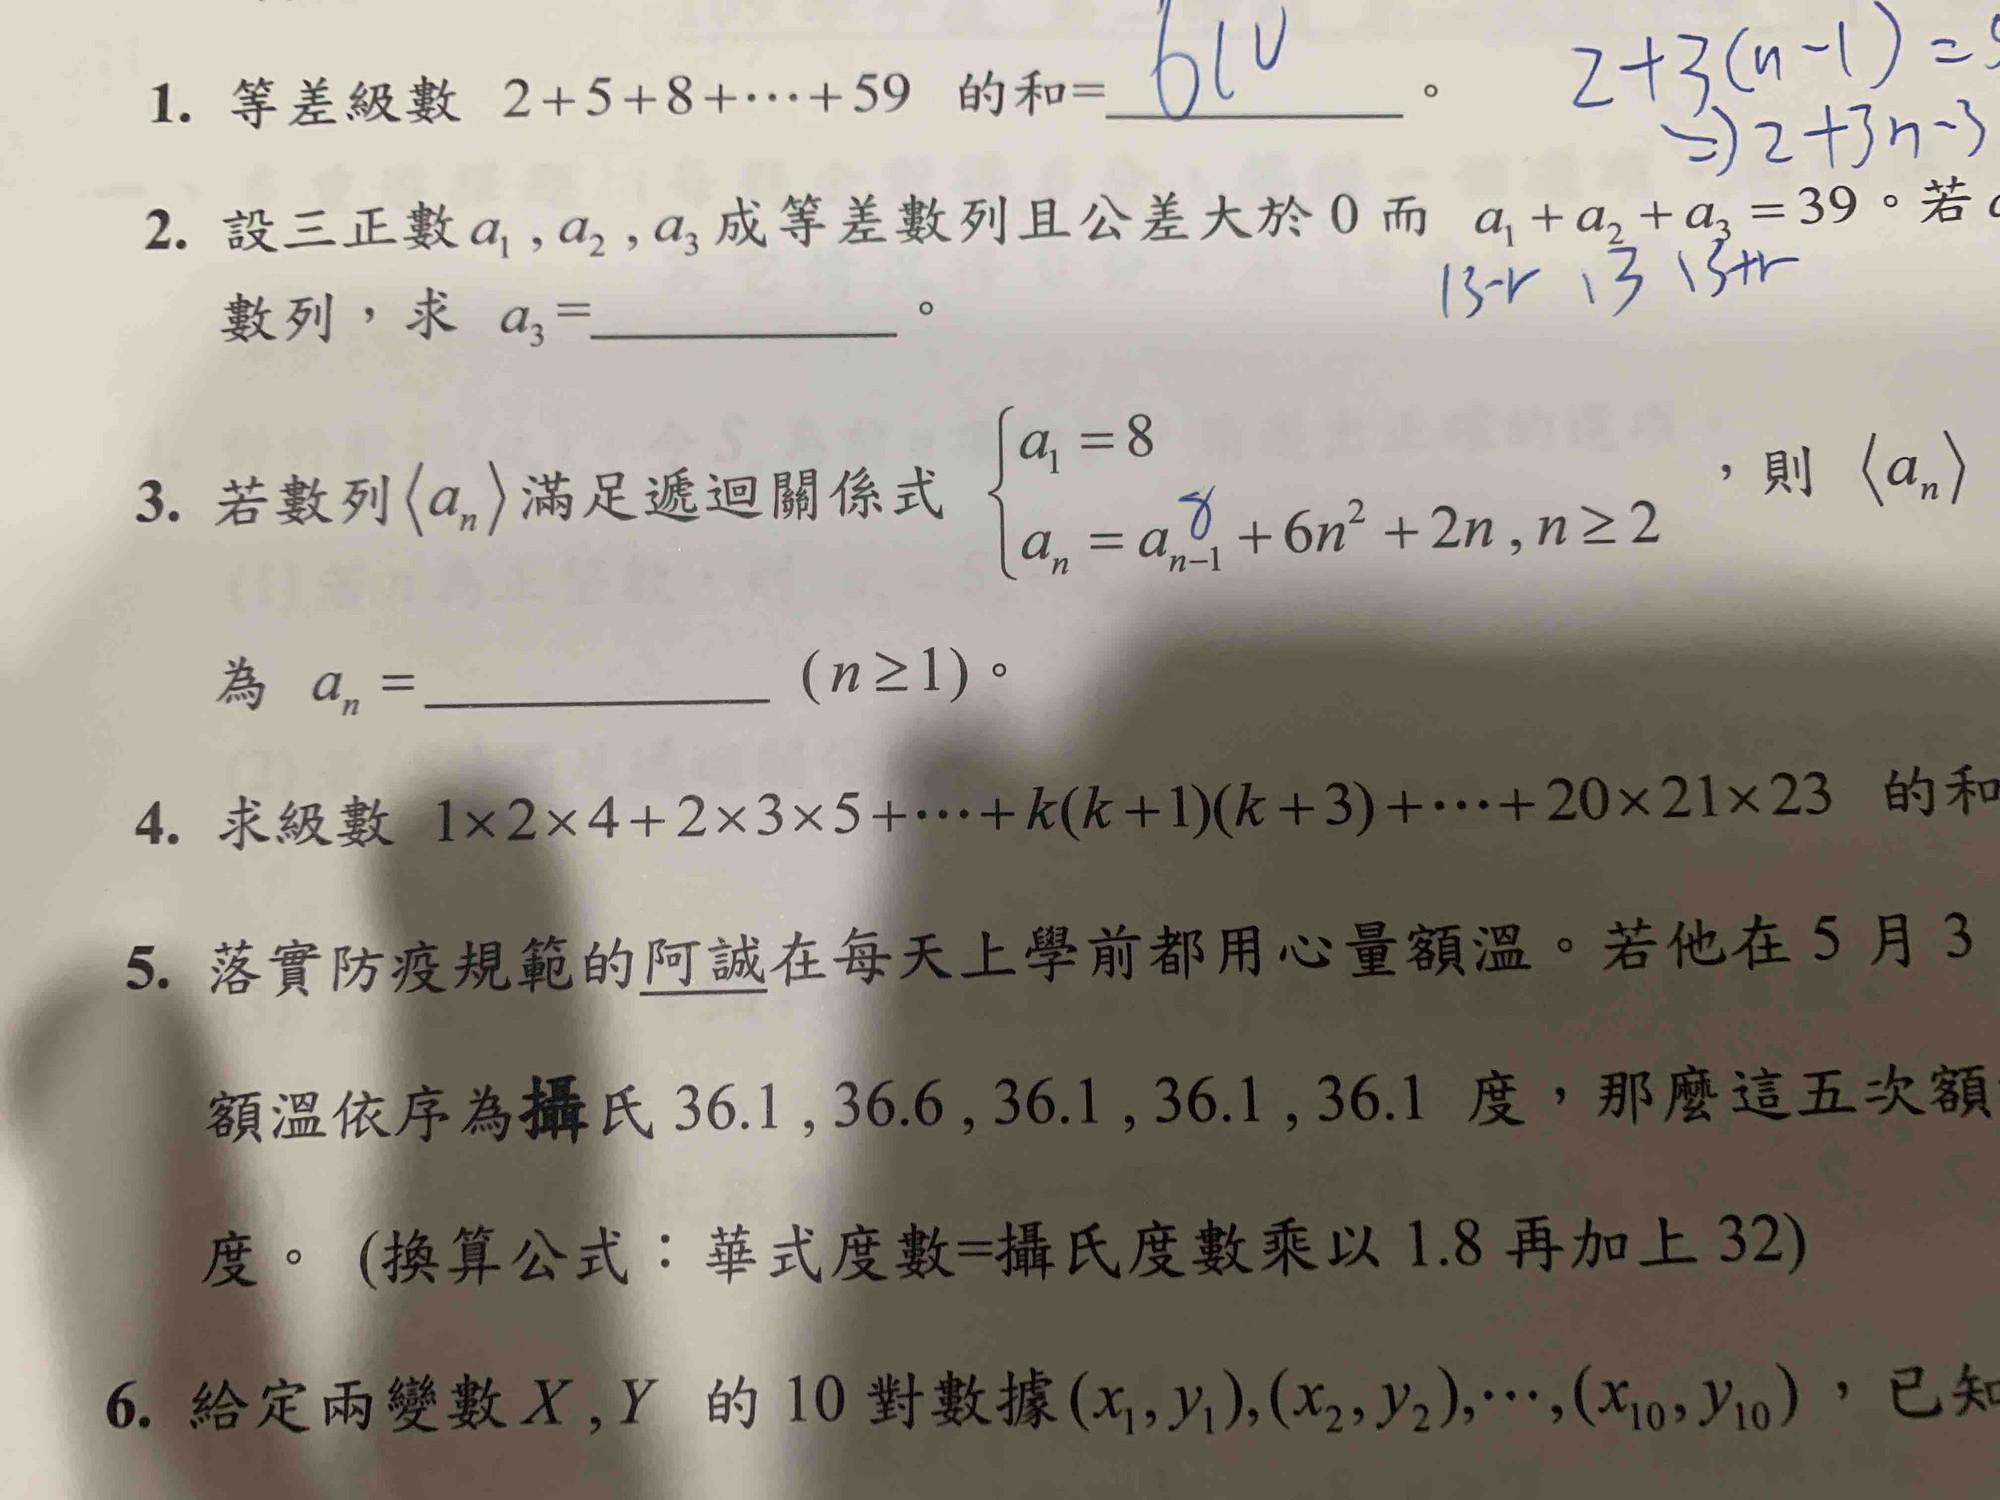 1. 等差級數 2+5+8+⋯+59 的和= 610 。
2+3(n-1)=
⇒2+3n-3
2. 設三正數 a₁ , a₂ , a₃ 成等差數列且公差大於 0 而 a₁+a₂+a₃=39。若
13-r 13 13+r
數列,求 a₃=________。
3. 若數列⟨aₙ⟩滿足遞迴關係式 { a₁=8 ,則 ⟨aₙ⟩
8
aₙ=aₙ₋₁+6n²+2n , n≥2
為 aₙ=________ (n≥1)。
4. 求級數 1×2×4+2×3×5+⋯+k(k+1)(k+3)+⋯+20×21×23 的和
5. 落實防疫規範的阿誠在每天上學前都用心量額溫。若他在 5 月 3
額溫依序為攝氏 36.1 , 36.6 , 36.1 , 36.1 , 36.1 度,那麼這五次額
度。 (換算公式:華式度數=攝氏度數乘以 1.8 再加上 32)
6. 給定兩變數 X , Y 的 10 對數據(x₁, y₁),(x₂, y₂),⋯,(x₁₀, y₁₀),已知